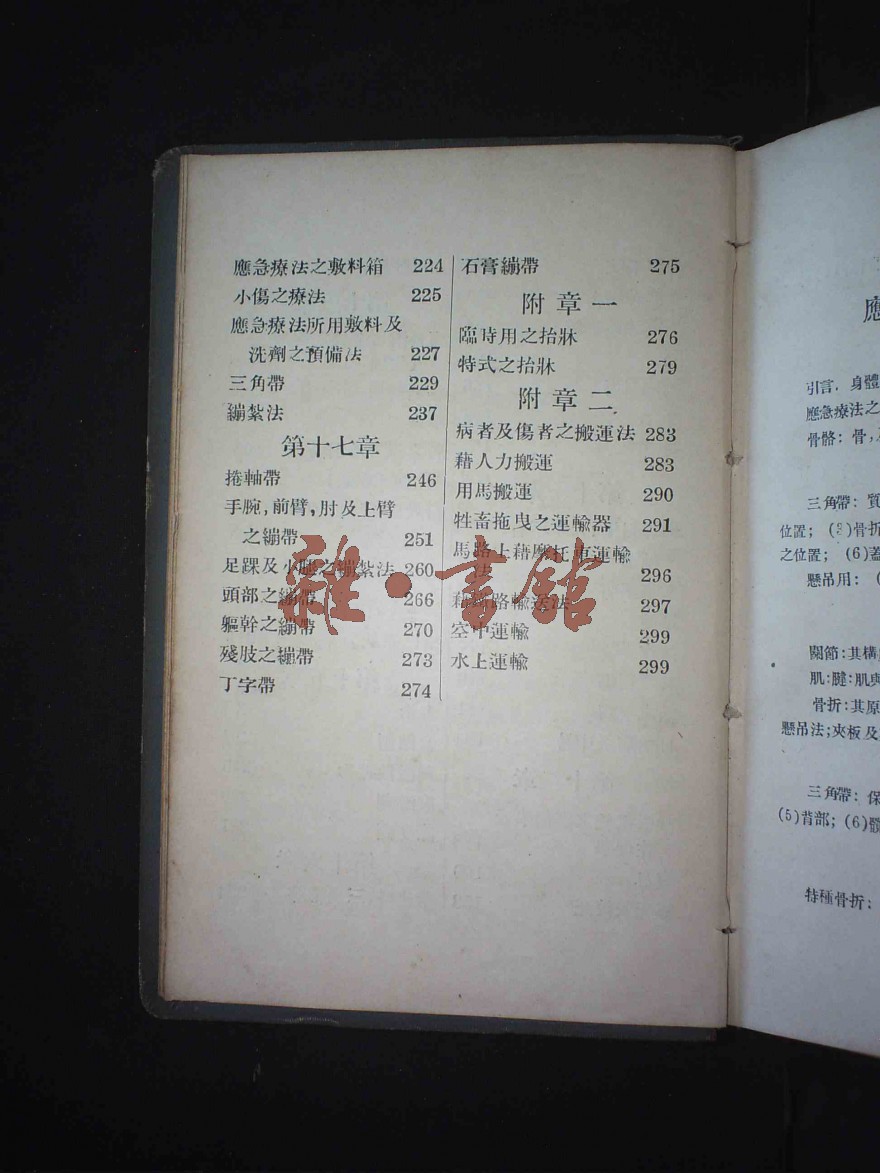 應急療法之敷料箱 224
小傷之療法 225
應急療法所用敷料及
洗劑之預備法 227
三角帶 229
繃紮法 237
第十七章
捲軸帶 246
手腕,前臂,肘及上臂
之繃帶 251
足踝及小腿之繃紮法 260
頭部之繃帶 266
軀幹之繃帶 270
殘肢之繃帶 273
丁字帶 274
石膏繃帶 275
附章一
臨時用之抬牀 276
特式之抬牀 279
附章二
病者及傷者之搬運法 283
藉人力搬運 283
用馬搬運 290
牲畜拖曳之運輸器 291
馬路上藉摩托車運輸
法 296
藉鐵路輸送法 297
空中運輸 299
水上運輸 299
雜·書館
應
引言.身體
應急療法之
骨骼:骨,
三角帶:質
位置;(5)骨折
之位置;(6)蓋
懸吊用:(
關節:其構
肌:腱:肌與
骨折:其原
懸吊法;夾板及
三角帶:保
(5)背部;(6)髖
特種骨折: